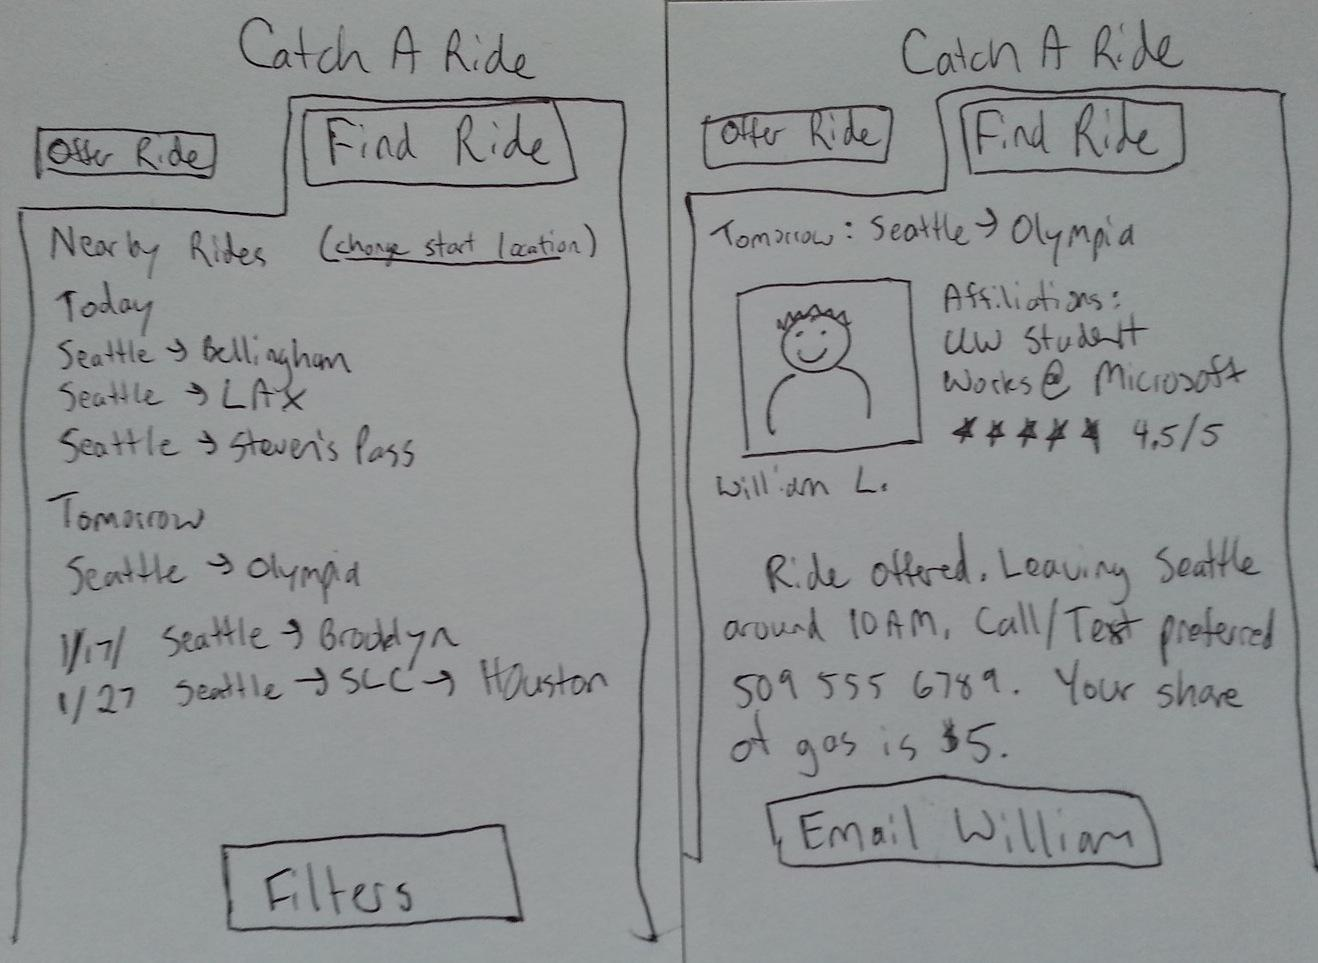 Catch A Ride
Offer Ride
Find Ride
Nearby Rides (change start location)
Today
Seattle → Bellingham
Seattle → LAX
Seattle → Steven's Pass
Tomorrow
Seattle → Olympia
1/17/ Seattle → Brooklyn
1/27 Seattle → SLC → Houston
Filters
Catch A Ride
Offer Ride
Find Ride
Tomorrow: Seattle → Olympia
Affiliations:
UW Student
Works @ Microsoft
★★★★★ 4.5/5
William L.
Ride offered. Leaving Seattle
around 10AM. Call/Text preferred
509 555 6789. Your share
of gas is $5.
Email William